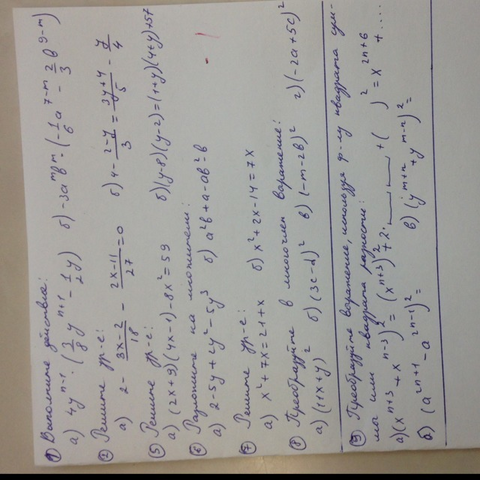 ① Выполните действия:
а) 4yⁿ⁻¹·(3/8 yⁿ⁺¹ - 1/2 y) б) -3aᵐbᵐ·(-1/6 a⁷⁻ᵐ - 2/3 b⁹⁻ᵐ)
② Решите ур-е:
а) 2 - (3x-2)/18 - (2x-11)/27 = 0 б) 4 - (2-y)/3 = (3y+4)/5 - y/4
⑤ Решите ур-е:
а) (2x+9)(4x-1)-8x²=59 б) (y-8)(y-2)=(1+y)(4+y)+57
⑥ Разложите на множители:
а) 2-5y+2y²-5y³ б) a²b+a-ab²-b
⑦ Решите ур-е:
а) x²+7x=21+x б) x²+2x-14=7x
⑧ Преобразуйте в многочлен выражение:
а) (1+x+y)² б) (3c-d)² в) (-m-2b)² г) (-2a+5c)²
⑨ Преобразуйте выражение, используя ф-лу квадрата сум-
мы или квадрата разности:
а) (xⁿ⁺³+xⁿ⁻³)²=(xⁿ⁺³)²+2·__·__+( )²=x²ⁿ⁺⁶+....
б) (a²ⁿ⁺¹-a²ⁿ⁻¹)²= в) (yᵐ⁺ⁿ+yᵐ⁻ⁿ)²=